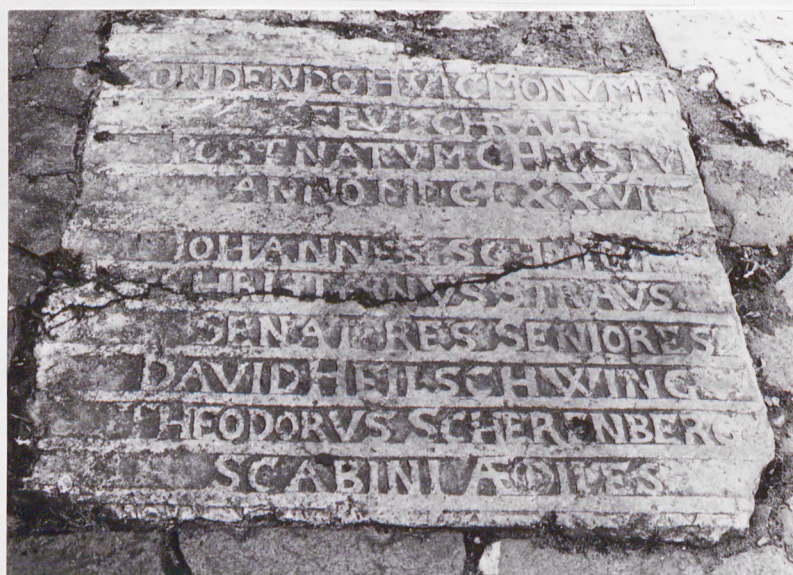 ONDENDO HVIC MONVMEN
SEPULCHRALE
POST NATVM CHRISTVM
ANNO MDCLXXVI
JOHANNES
CHRISTIANVS STRAVS
SENATORES SENIORES
DAVID HEILSCHWING
THEODORVS SCHERENBERG
SCABINI ÆDILES